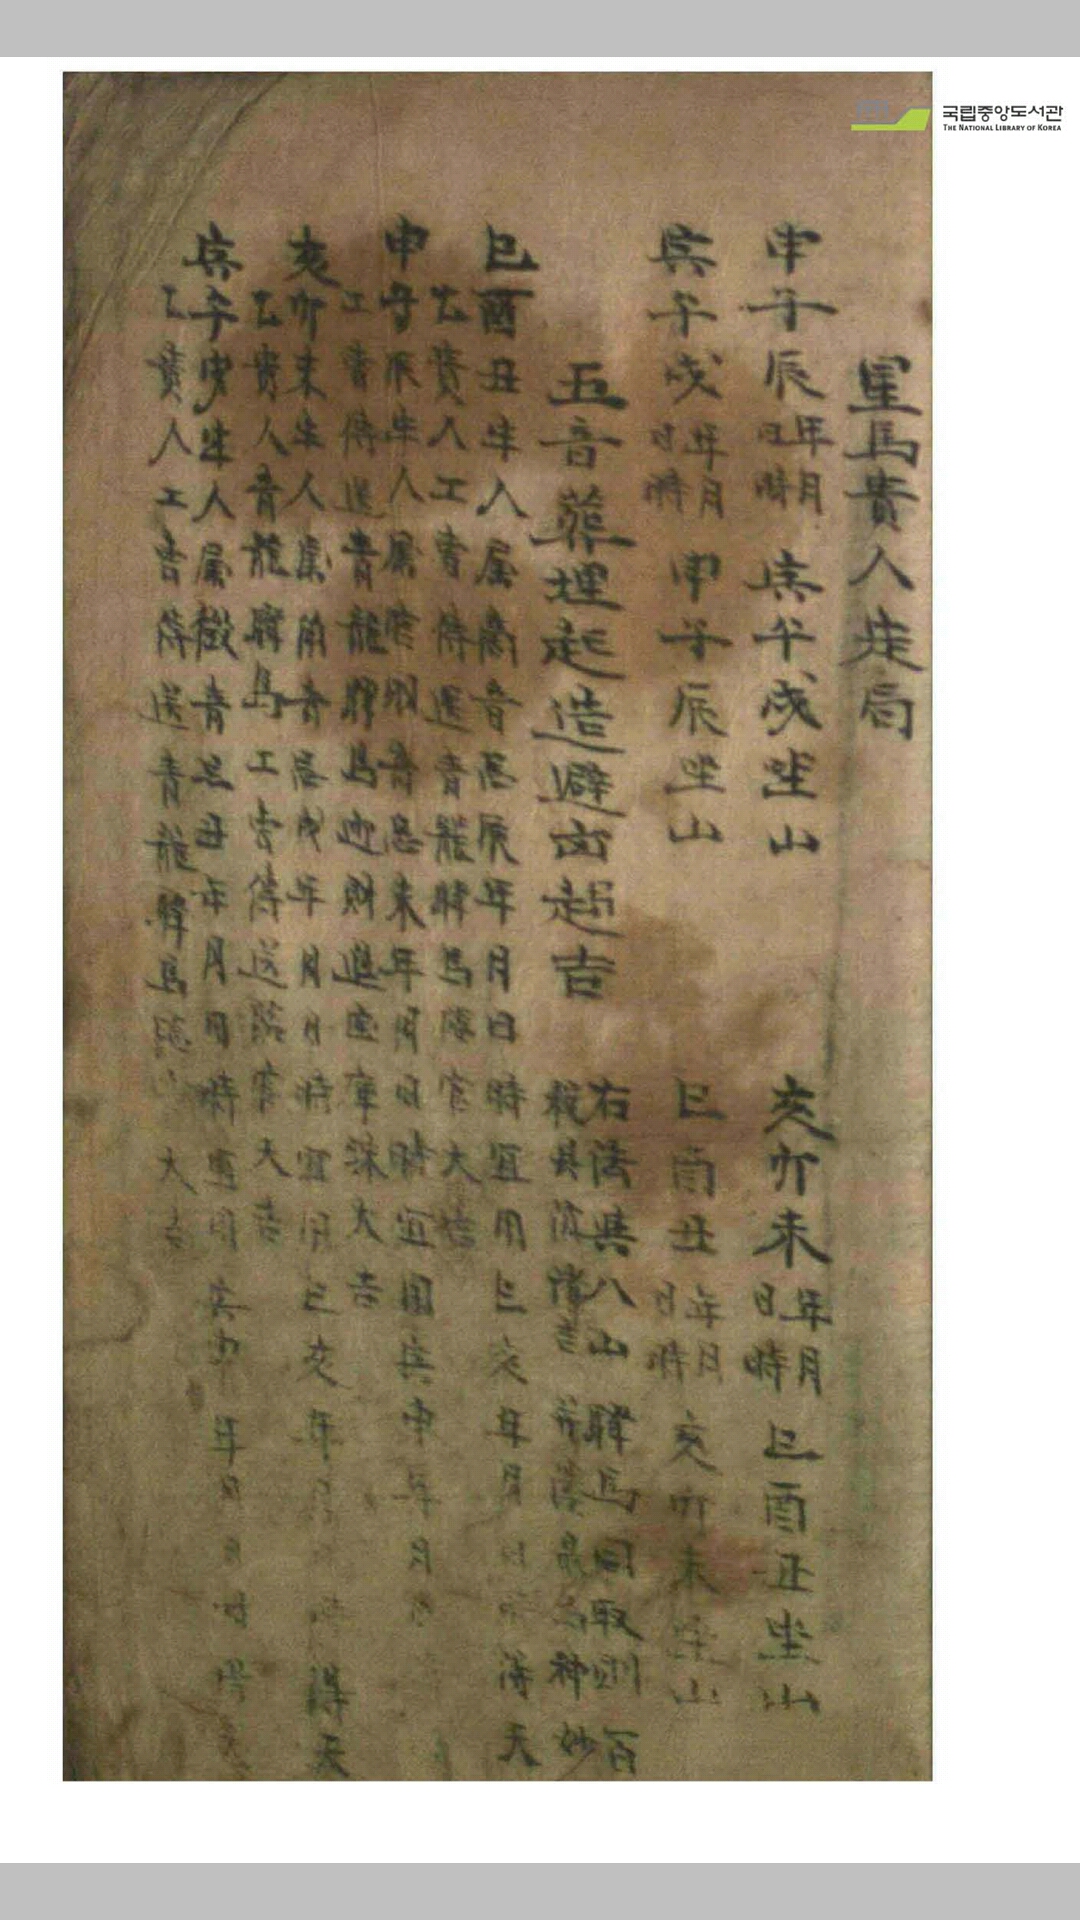 국립중앙도서관
THE NATIONAL LIBRARY OF KOREA
星馬貴人定局
申子辰年月日時 寅午戌坐山 亥卯未年月日時 巳酉丑坐山
寅午戌年月日時 申子辰坐山 巳酉丑年月日時 亥卯未坐山
五音葬埋起造避凶趍吉 右法其八山驛馬同取則百
殺其沉諸吉 最為神妙
巳酉丑生人屬商音忌辰年月日時宜用巳亥年月 得天
乙貴人工曹傳送青龍驛馬臨官大吉
申子辰生人屬 音忌未年月日時宜用寅申年月
工曹傳送青龍驛馬迎財 庫 大吉
亥卯未生人屬角音忌戌年月日時宜用巳亥年 得天
乙貴人青龍驛馬工曹傳送臨官大吉
寅午戌生人屬徵音忌丑年月日時宜用寅申年月日時得天
乙貴人工曹傳送青龍驛馬臨 大吉